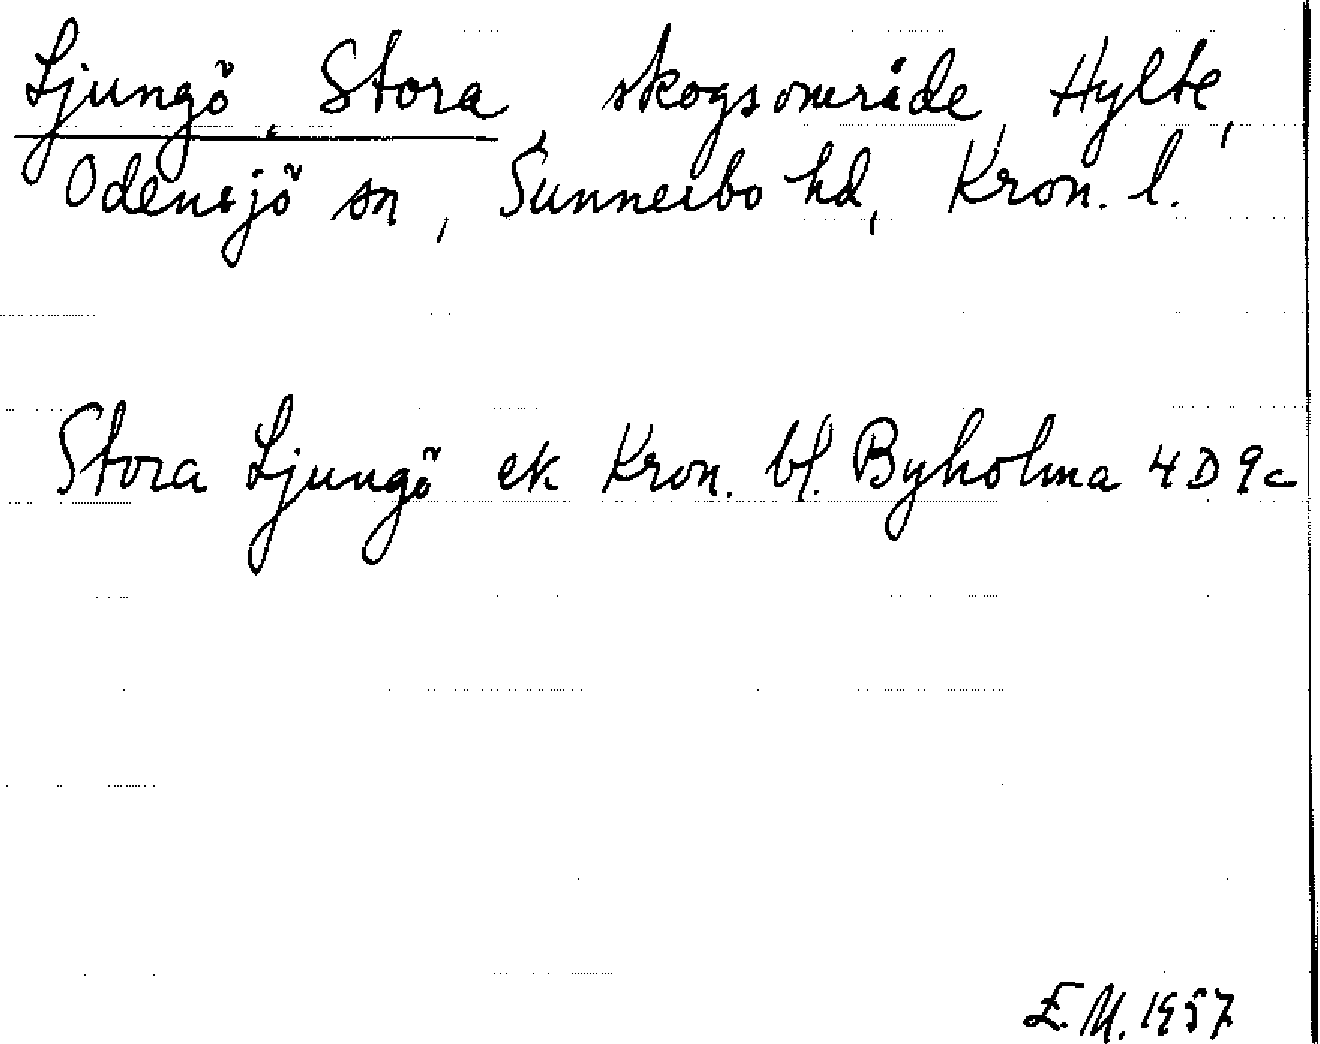 Ljungö, Stora, skogsområde, Hylte,
Odensjö sn, Sunnerbo hd, Kron. l.
Stora Ljungö ek Kron. bl. Byholma 4 D 9c
E.M. 1957